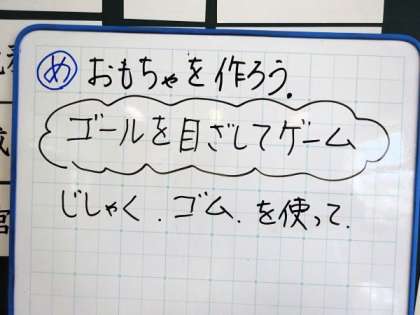 め おもちゃを作ろう.
ゴールを目ざしてゲーム
じしゃく.ゴム.を使って.